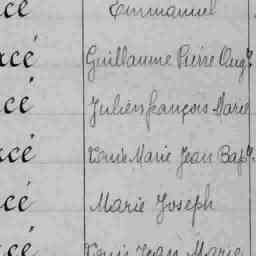 cé Emmanuel
rcé Guillaume Pierre Aug.te
cé Julien françois Marie
rcé Louis Marie Jean Bap.te
cé Marie Joseph
cé Louis Jean Marie